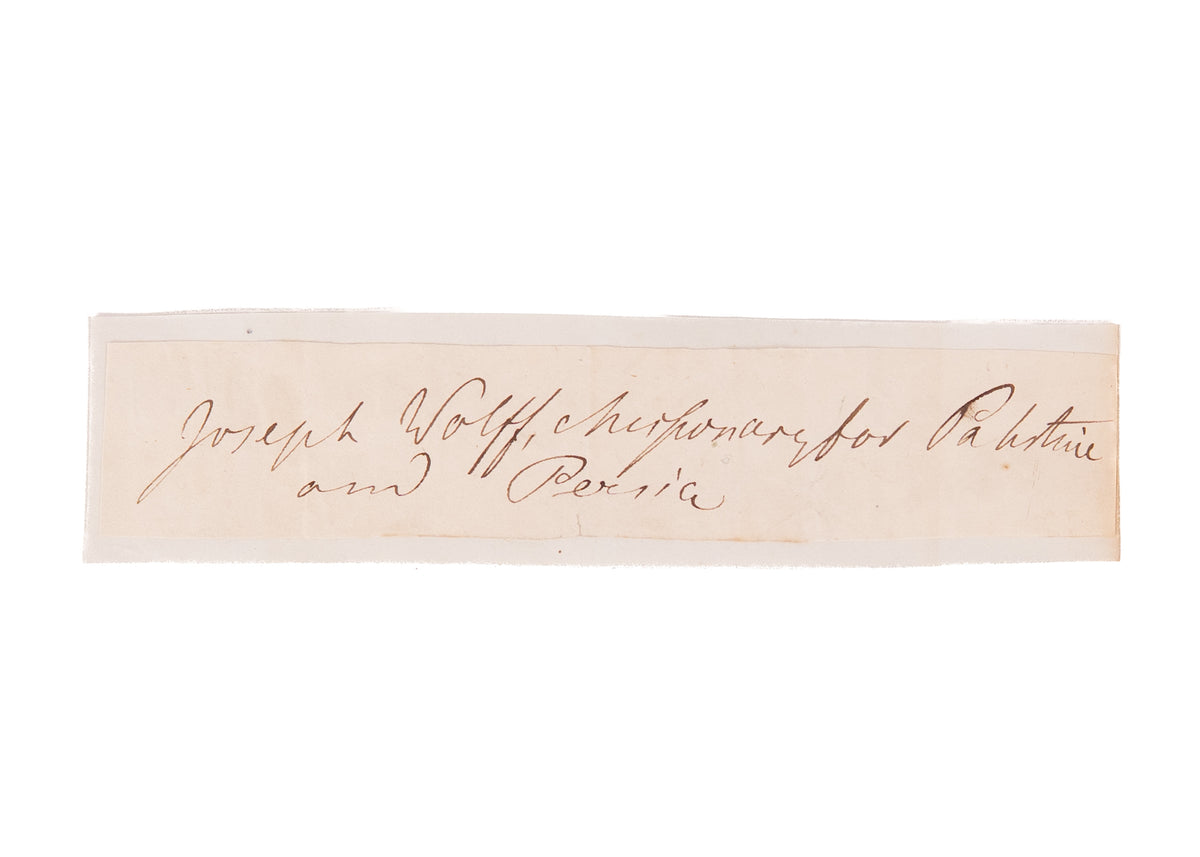 Joseph Wolff, Missionary for Palestine
and Persia